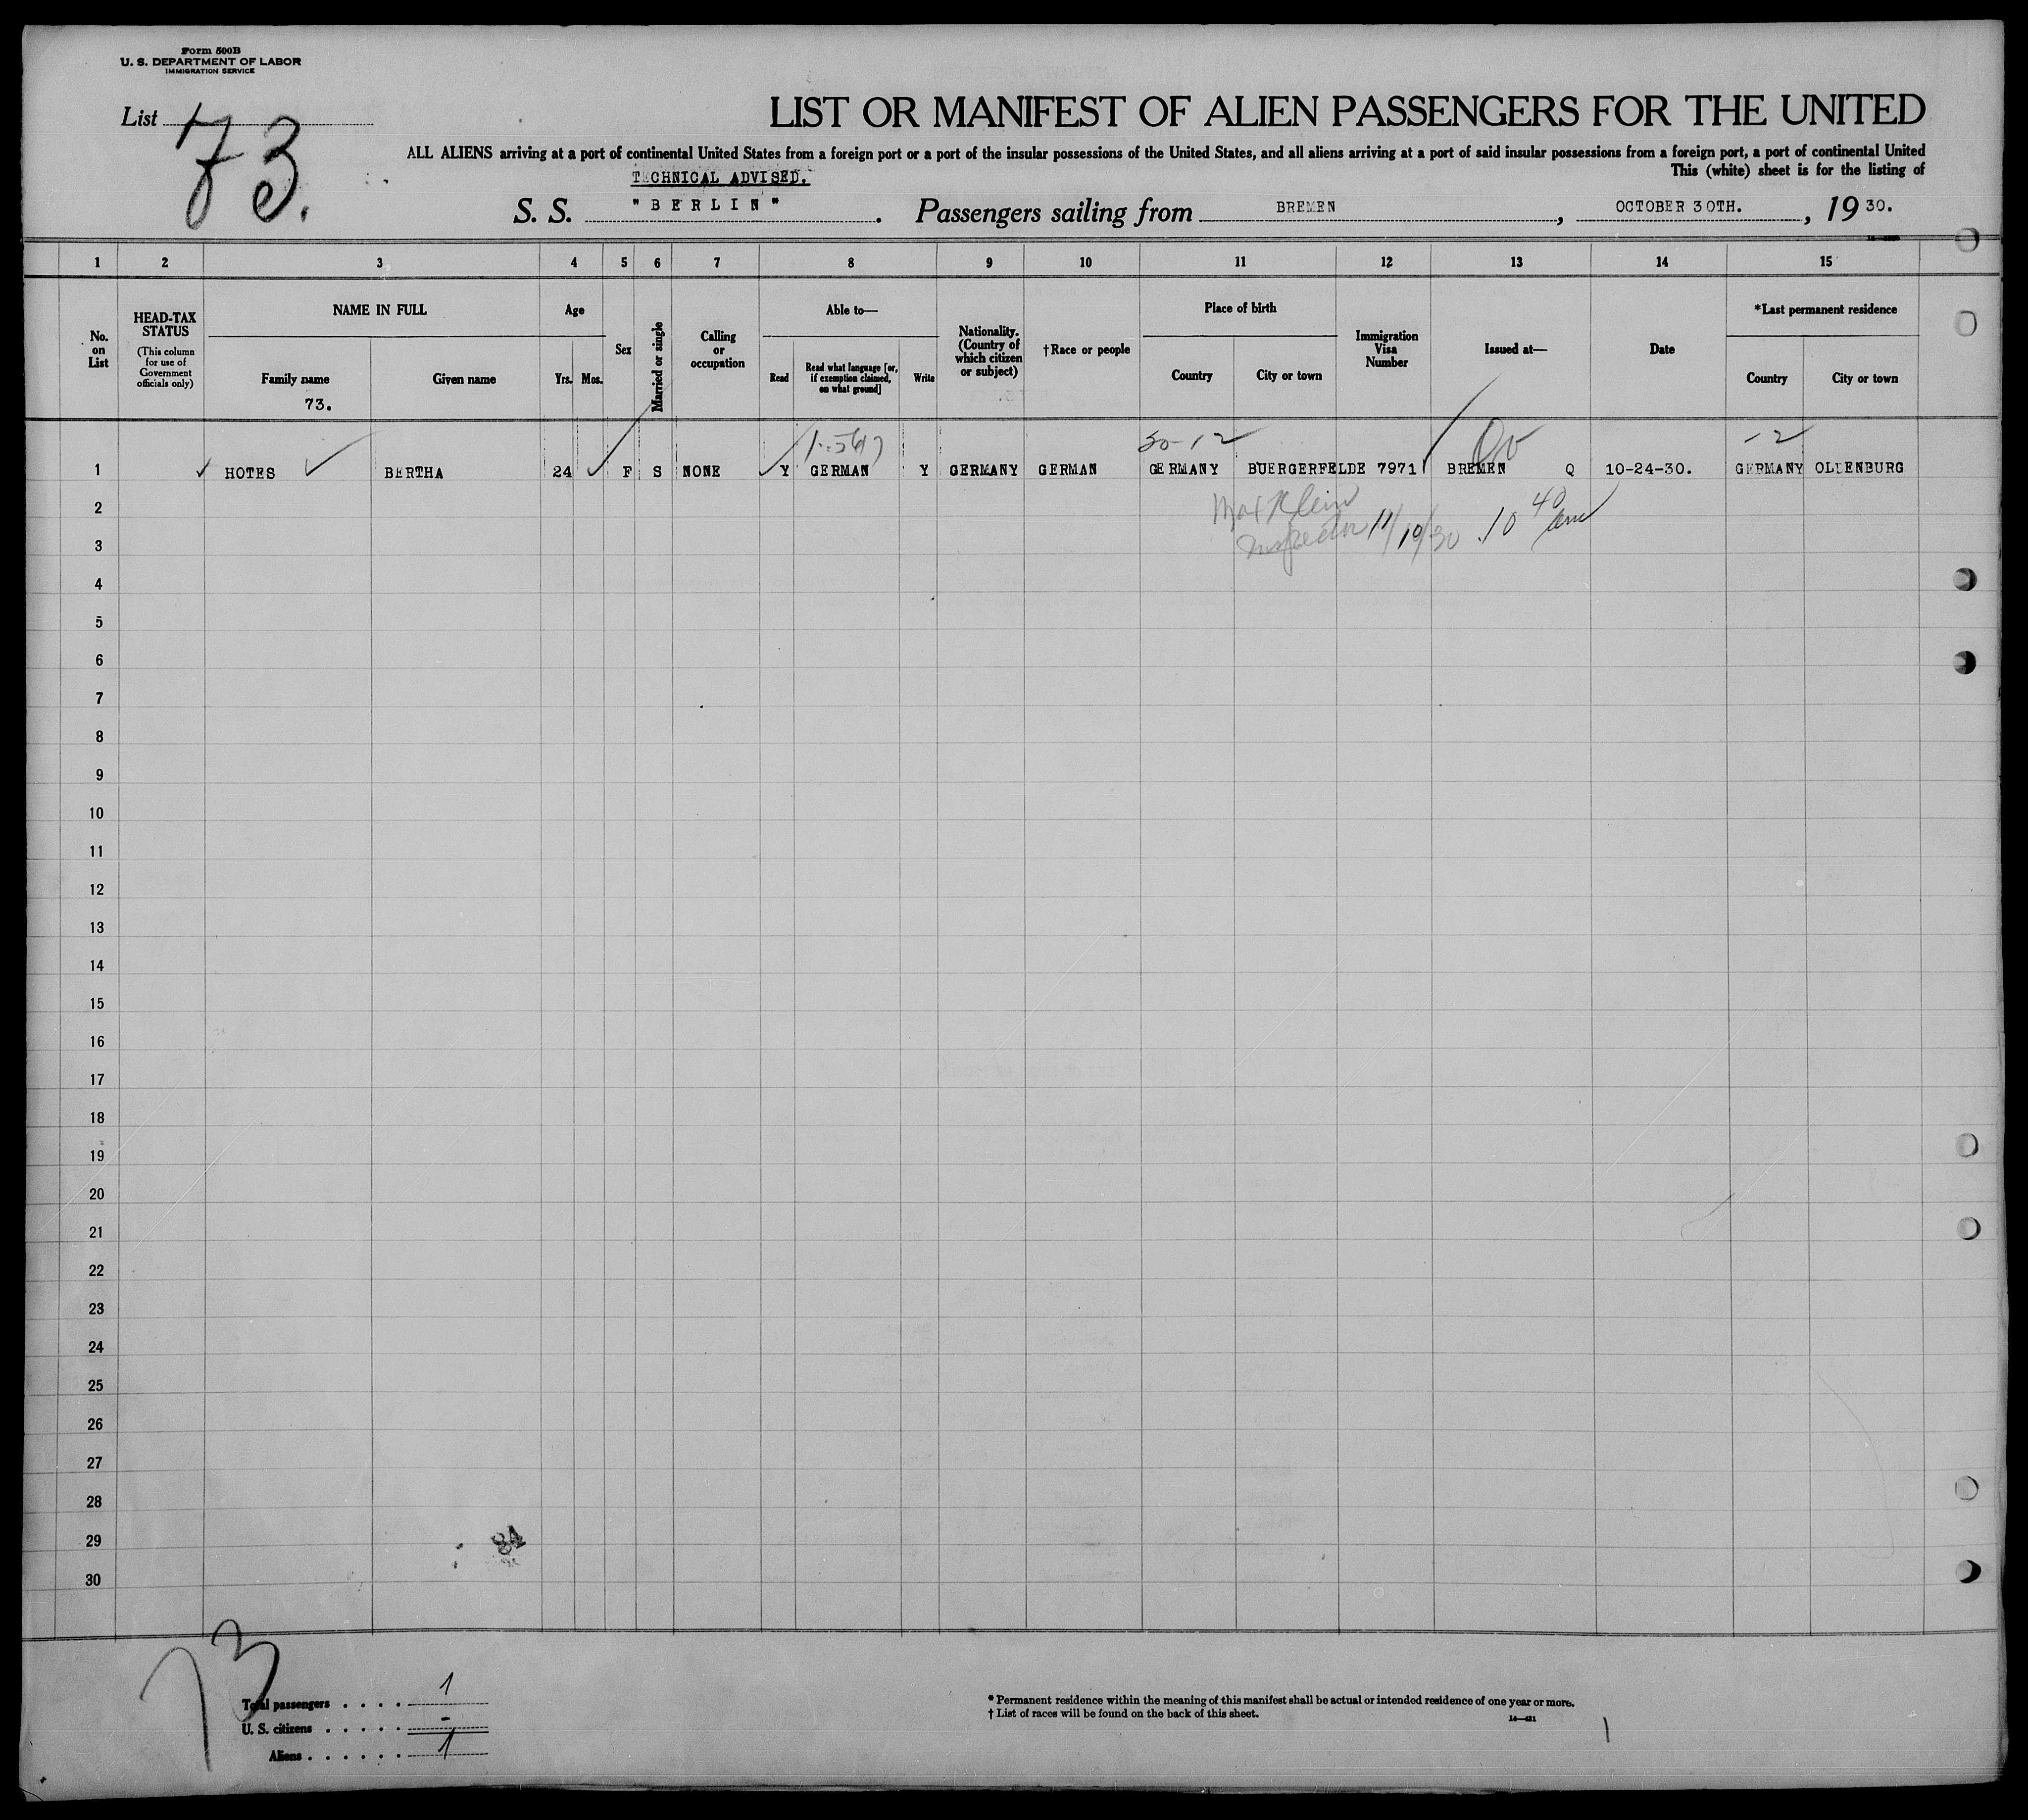 Form 500B
U. S. DEPARTMENT OF LABOR
IMMIGRATION SERVICE
List 73.
LIST OR MANIFEST OF ALIEN PASSENGERS FOR THE UNITED
ALL ALIENS arriving at a port of continental United States from a foreign port or a port of the insular possessions of the United States, and all aliens arriving at a port of said insular possessions from a foreign port, a port of continental United
This (white) sheet is for the listing of
TECHNICAL ADVISED.
S. S. "BERLIN". Passengers sailing from BREMEN, OCTOBER 30TH., 1930.
1 2 3 4 5 6 7 8 9 10 11 12 13 14 15
No. on List
HEAD-TAX STATUS
(This column for use of Government officials only)
NAME IN FULL
Family name
Given name
73.
Age
Yrs. Mos.
Sex
Married or single
Calling or occupation
Able to—
Read
Read what language [or, if exemption claimed, on what ground]
Write
Nationality. (Country of which citizen or subject)
†Race or people
Place of birth
Country
City or town
Immigration Visa Number
Issued at—
Date
*Last permanent residence
Country
City or town
30-12
-2
1 HOTES BERTHA 24 F S NONE Y GERMAN Y GERMANY GERMAN GERMANY BUERGERFELDE 7971 BREMEN Q 10-24-30. GERMANY OLDENBURG
Max Klein
Inspector 11/10/30 10 40 am
2
3
4
5
6
7
8
9
10
11
12
13
14
15
16
17
18
19
20
21
22
23
24
25
26
27
28
29
30
84
73
Total passengers . . . . 1
U. S. citizens . . . . . -
Aliens . . . . . . 1
* Permanent residence within the meaning of this manifest shall be actual or intended residence of one year or more.
† List of races will be found on the back of this sheet.